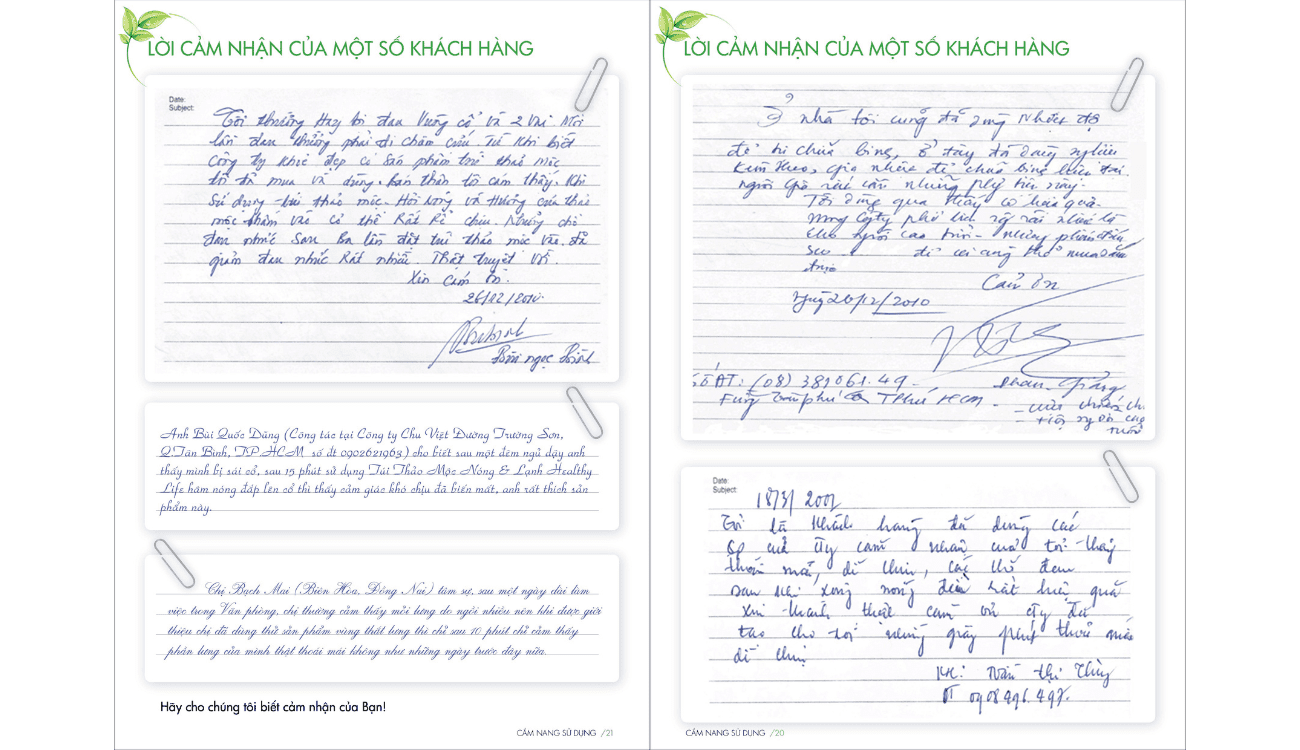 LỜI CẢM NHẬN CỦA MỘT SỐ KHÁCH HÀNG
Date:
Subject:
Tôi thường Hay bị đau Vướng cổ và 2 Vai Mỗi
lần đau thường phải đi châm cứu. Từ Khi biết
Công ty Khoẻ đẹp có Sản phẩm túi thảo mộc
tôi đã mua và dùng. bản thân tôi cảm thấy. Khi
Sử dụng túi thảo mộc. Hơi nóng và Hương của thảo
mộc thấm vào cơ thể Rất Rễ chịu. Những chỗ
đau nhức Sau Ba lần đặt túi thảo mộc vào. đã
giảm đau nhức Rất nhiều. Thật tuyệt vời.
Xin Cám ơn.
26/12/2010.
Anh Bùi Quốc Dũng (Công tác tại Công ty Chu Việt Đường Trường Sơn,
Q.Tân Bình, TP.HCM số đt 0902621963) cho biết sau một đêm ngủ dậy anh
thấy mình bị sái cổ, sau 15 phút sử dụng Túi Thảo Mộc Nóng & Lạnh Healthy
Life hâm nóng đắp lên cổ thì thấy cảm giác khó chịu đã biến mất, anh rất thích sản
phẩm này.
Chị Bạch Mai (Biên Hòa, Đồng Nai) tâm sự, sau một ngày dài làm
việc trong Văn phòng, chị thường cảm thấy mỏi lưng do ngồi nhiều nên khi được giới
thiệu chị đã dùng thử sản phẩm vùng thắt lưng thì chỉ sau 10 phút chị cảm thấy
phần lưng của mình thật thoải mái không như những ngày trước đây nữa.
Hãy cho chúng tôi biết cảm nhận của Bạn!
CẨM NANG SỬ DỤNG /21
LỜI CẢM NHẬN CỦA MỘT SỐ KHÁCH HÀNG
Ở nhà tôi cũng đã dùng nhiệt độ
để trị chữa bệnh, ở đây đã dùng
người già rất cần những
Tôi dùng qua thấy có hiệu quả.
cho người cao tuổi -
Cảm ơn
Ngày 26/12/2010
Số ĐT: (08) 381061.49 -
HCM -
Date:
Subject:
18/3/
Tôi là Khách hàng đã dùng các
Sp của Cty cảm nhận của tôi thấy
thoải mái, dễ chịu,
sau khi xong nóng hiệu quả
Xin thành thật cảm ơn Cty đã
tạo cho tôi những giây phút thoải mái
dễ chịu
KH: Thị Thùy
ĐT 0908496.497.
CẨM NANG SỬ DỤNG /20